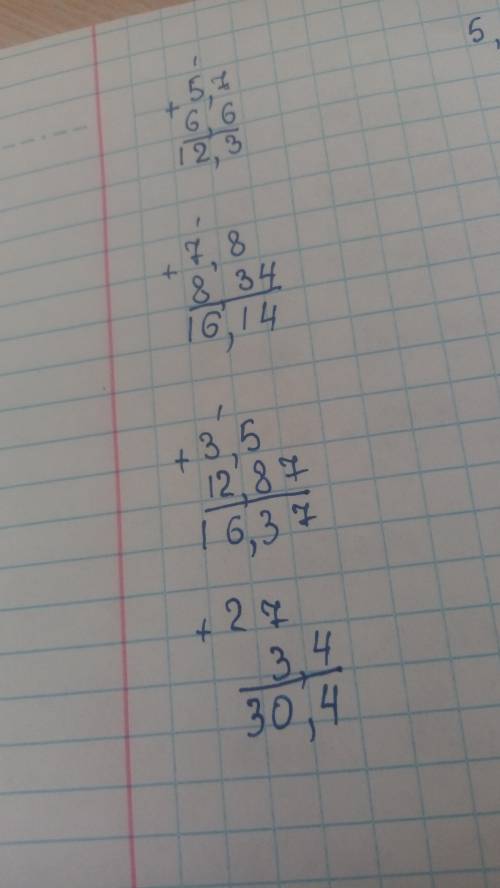 5,
1
+ 5,7
6,6
12,3
1
+ 7,8
8,34
16,14
1
+ 3,5
12,87
16,37
+ 27
3,4
30,4